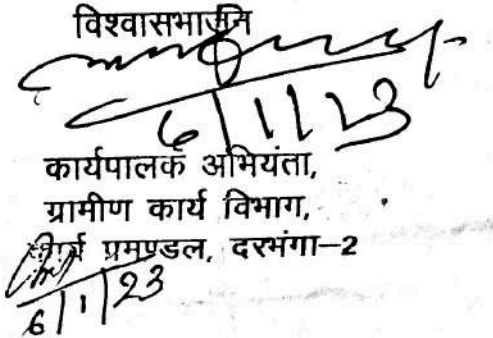 विश्वासभाजन
6/1/23
कार्यपालक अभियंता,
ग्रामीण कार्य विभाग,
कार्य प्रमण्डल, दरभंगा–2
6/1/23